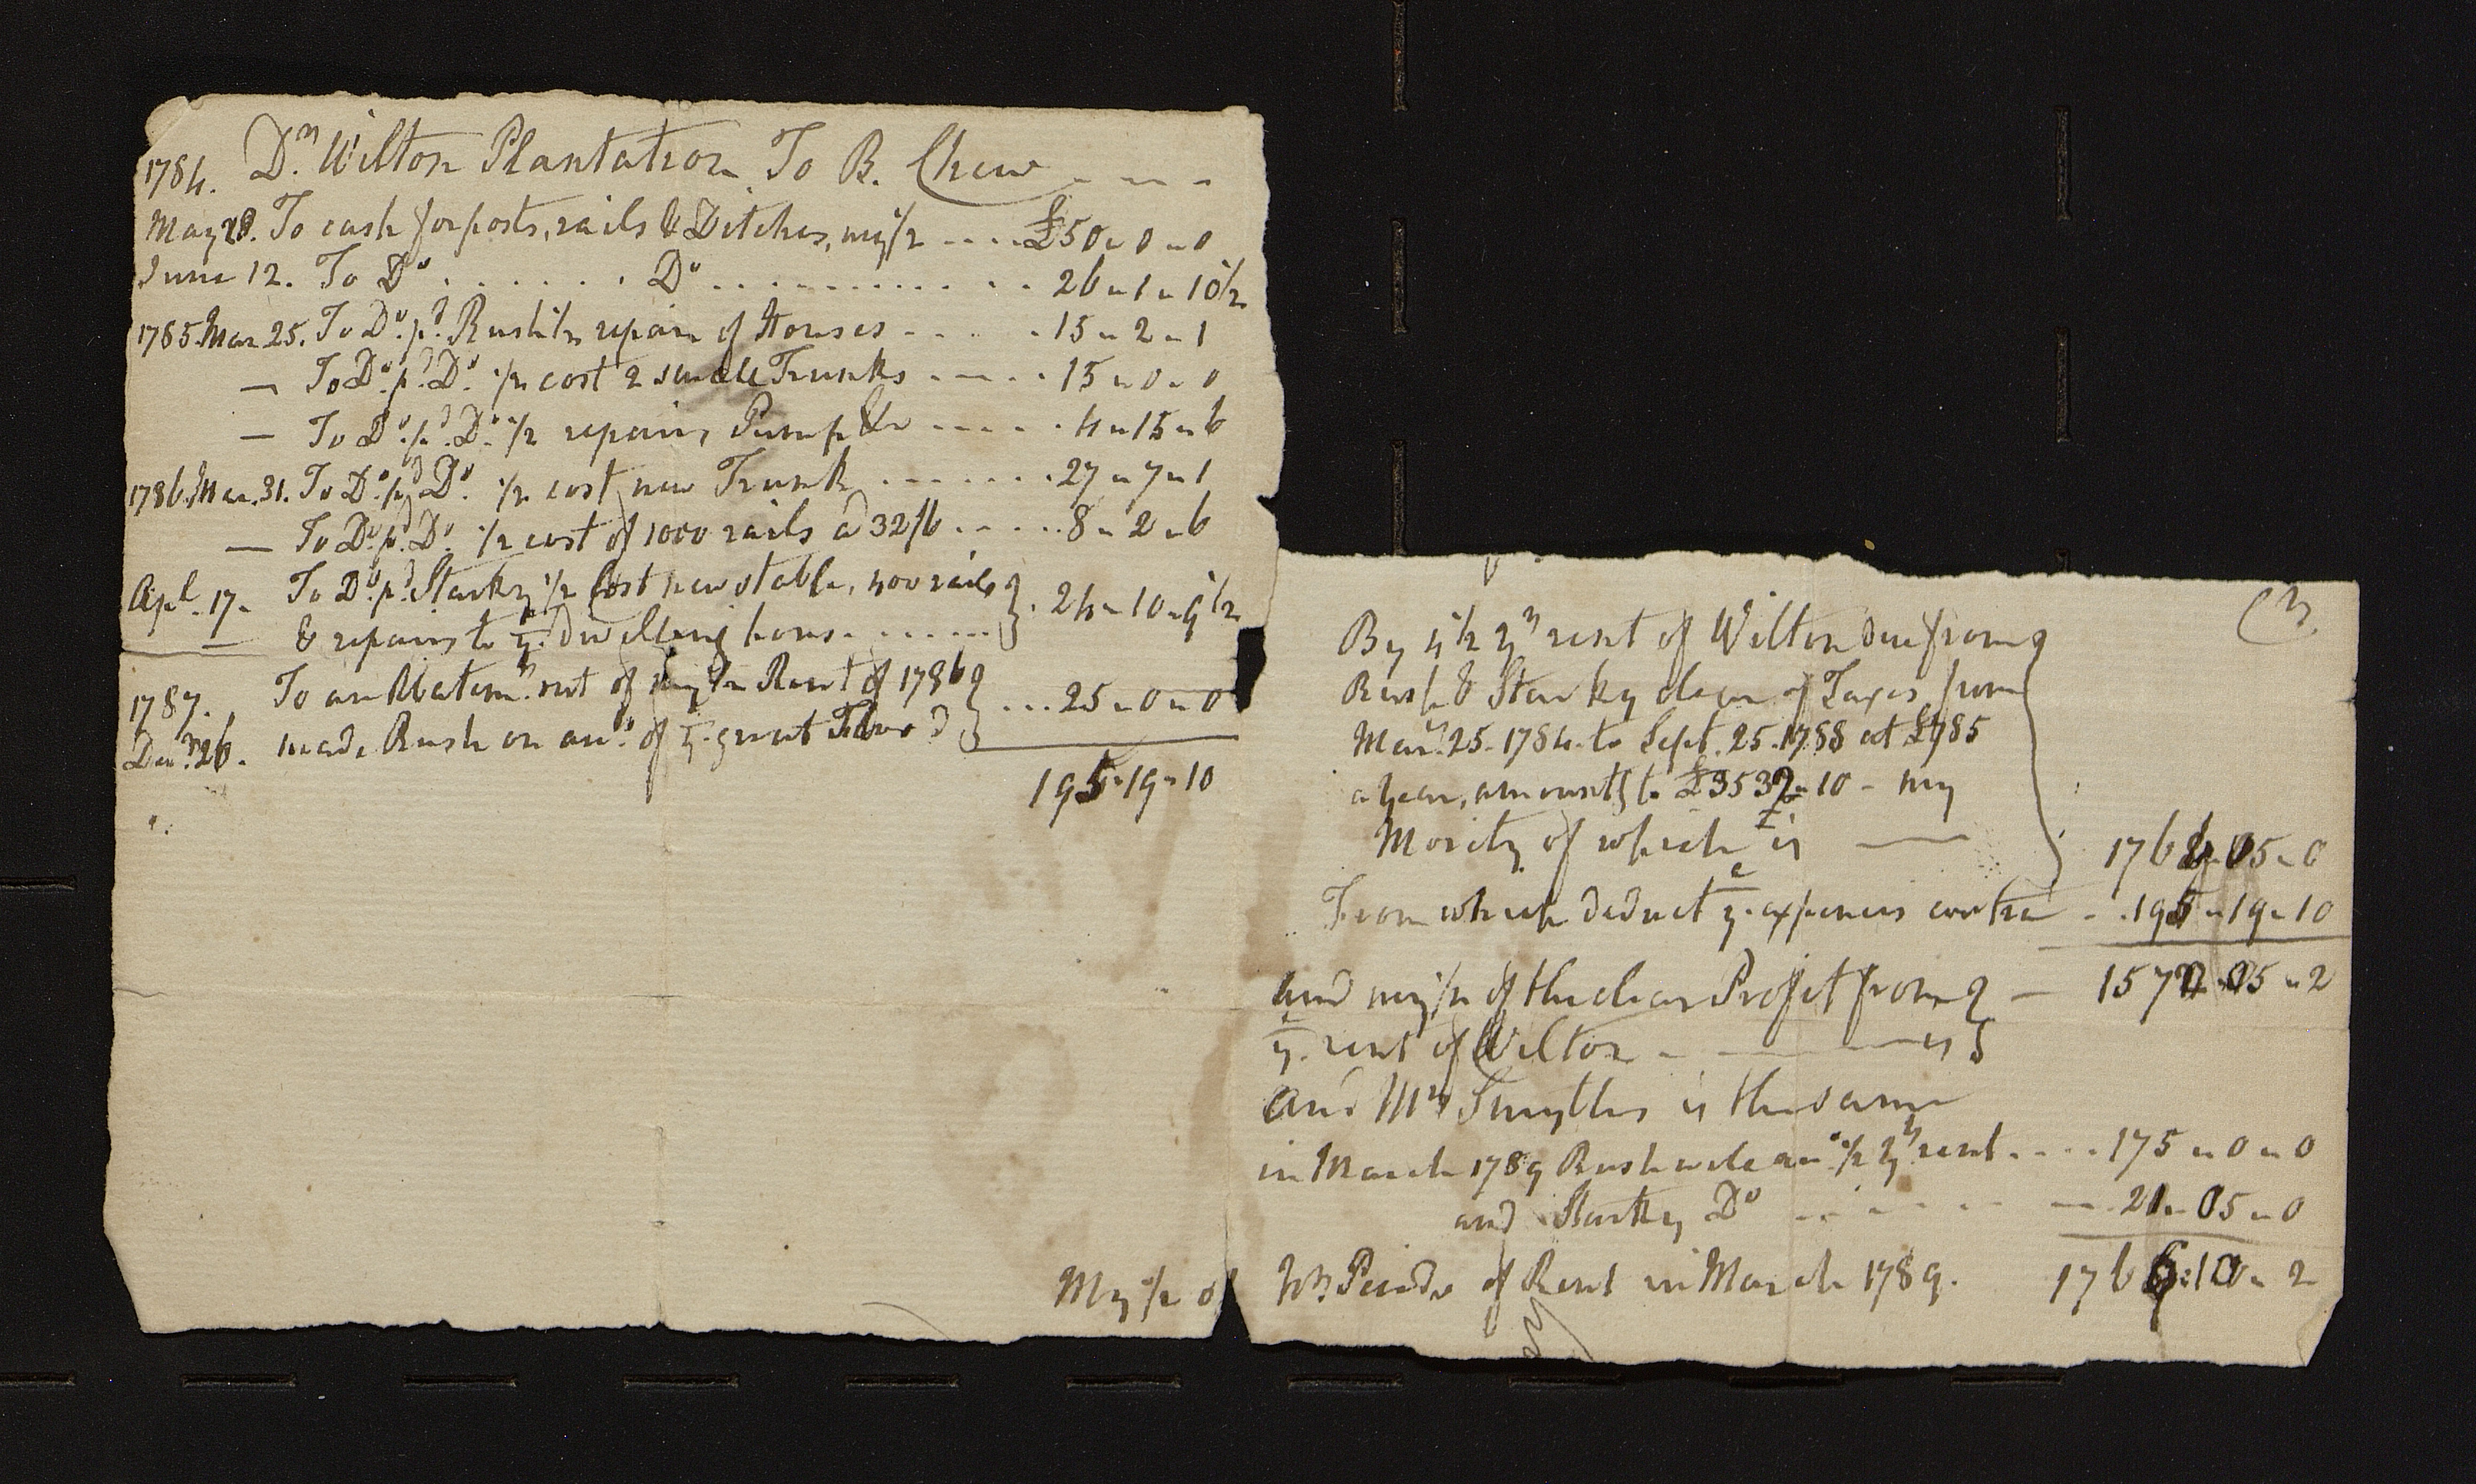 1784. Dr. Wilton Plantation To B. Chew
May 28. To cash for posts, rails & Ditches, my 1/2 .... £50 " 0 " 0
June 12. To Do. ...... Do .......... 26 " 1 " 10 1/2
1785. Mar 25. To Do. pd. Rush 1/2 repairs of Houses .... 15 " 2 " 1
— To Do. pd. Do. 1/2 cost 2 small Trunks .... 15 " 0 " 0
— To Do. pd. Do. 1/2 repairs, Pump &c .... 4 " 15 " 6
1786. Mar. 31. To Do. pd Do. 1/2 cost new Trunk ...... 27 " 7 " 1
— To Do. pd. Do. 1/2 cost of 1000 rails @ 32/6 ..... 8 " 2 " 6
Apl. 17. To Do. pd Starky 1/2 Cost new stable, 400 rails
— & repairs to ye. dwelling house ...... 24 " 10 " 9 1/2
1787. To an Abatemt. of my 1/2 Rent of 1786
Decr. 26. made Rush on acct. of ye. great ... 25 " 0 " 0
195 " 19 " 10
Cr.
By 4 1/2 yrs rent of Wilton due from
Rush & Starky clear of Taxes from
Mar. 25. 1784. to Sept. 25. 1788 at £785
a year, amounts to £3532 " 10 - my
Moiety of which is — 1766 " 05 " 0
From which deduct ye. expences contra - . 195 " 19 " 10
and my 1/2 of the clear Profit from — 1570 " 05 " 2
ye. rent of Wilton - — is
and Mrs Smyths is the same
in March 1789 Rush will owe 1/2 yrs rent .... 175 " 0 " 0
and Starky Do ..... 21 " 05 " 0
My 1/2 of Wn Proceeds of Rent in March 1789. 1766 : 10 " 2